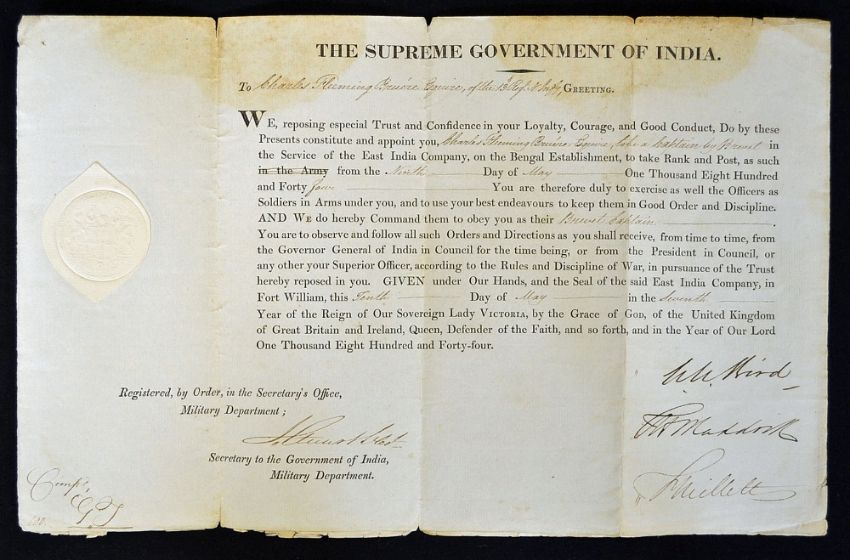 THE SUPREME GOVERNMENT OF INDIA.
To Charles Fleming Bruére Esquire, of the 13 Regt N Infy, GREETING.
WE, reposing especial Trust and Confidence in your Loyalty, Courage, and Good Conduct, Do by these
Presents constitute and appoint you, Charles Fleming Bruére Esquire, to be a Captain by Brevet in
the Service of the East India Company, on the Bengal Establishment, to take Rank and Post, as such
in the Army from the Ninth Day of May One Thousand Eight Hundred
and Forty four You are therefore duly to exercise as well the Officers as
Soldiers in Arms under you, and to use your best endeavours to keep them in Good Order and Discipline.
AND WE do hereby Command them to obey you as their Brevet Captain.
You are to observe and follow all such Orders and Directions as you shall receive, from time to time, from
the Governor General of India in Council for the time being, or from the President in Council, or
any other your Superior Officer, according to the Rules and Discipline of War, in pursuance of the Trust
hereby reposed in you. GIVEN under Our Hands, and the Seal of the said East India Company, in
Fort William, this Tenth Day of May in the Seventh
Year of the Reign of Our Sovereign Lady VICTORIA, by the Grace of GOD, of the United Kingdom
of Great Britain and Ireland, Queen, Defender of the Faith, and so forth, and in the Year of Our Lord
One Thousand Eight Hundred and Forty-four.
W. W. Bird
T H Maddock
F Millett
Registered, by Order, in the Secretary's Office,
Military Department;
Secretary to the Government of India,
Military Department.
Comp'd,